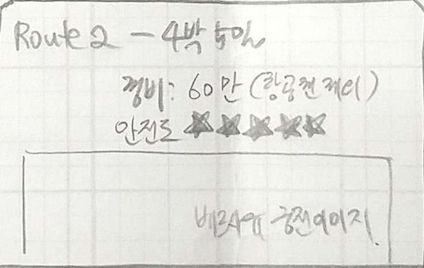 Route 2 - 4박 5일
경비: 60만 (항공권 제외)
안전도 ★★★★★
베르사유 궁전 이미지